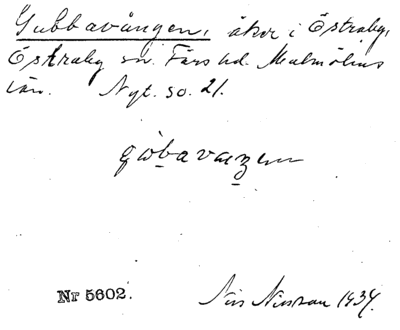 Gubbavången, åker i Östraby,
Östraby sn. Färs hd. Malmöhus
län. Nyt. so. 21.
Nr 5602. Nils Nilsson 1934.